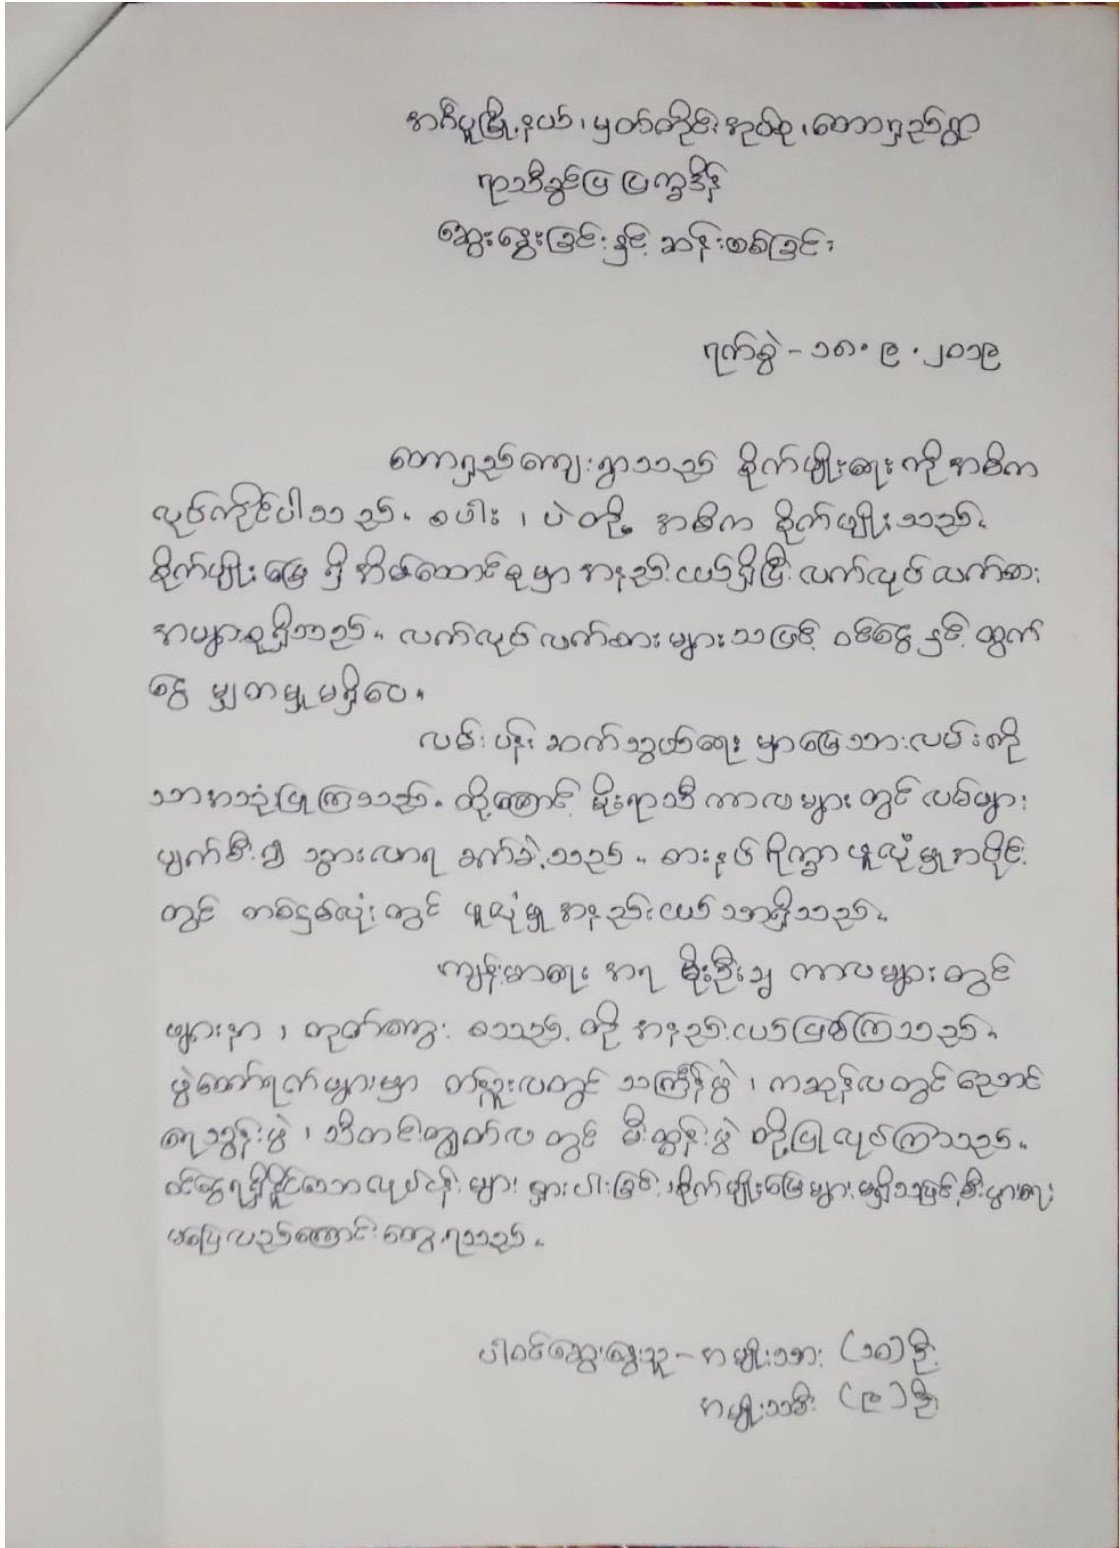 အင်္ဂပူမြို့နယ်၊ မှတ်တိုင်အုပ်စု၊ တောရှည်ရွာ
ရာသီခွင်ပြ ပြက္ခဒိန်
ဆွေးနွေးခြင်းနှင့် ဆန်းစစ်ခြင်း
ရက်စွဲ - ၁၈.၉.၂၀၁၉
တောရှည်ကျေးရွာသည် စိုက်ပျိုးရေးကို အဓိက
လုပ်ကိုင်ပါသည်။ စပါး၊ ပဲတို့ အဓိက စိုက်ပျိုးသည်။
စိုက်ပျိုးမြေ ရှိ အိမ်ထောင်စုမှာ အနည်းငယ်ရှိပြီး လက်လုပ်လက်စား
အများစုရှိသည်။ လက်လုပ်လက်စားများသဖြင့် ဝင်ငွေနှင့် ထွက်
ငွေ မျှတမှု မရှိပေ။
လမ်းပန်းဆက်သွယ်ရေး မှာ မြေသားလမ်းကို
သာအသုံးပြုကြသည်။ ထို့ကြောင့် မိုးရာသီကာလများတွင် လမ်များ
ပျက်စီး၍ သွားလာရ ခက်ခဲ့သည်။ စားနပ်ရိက္ခာ ဖူလုံမှုအပိုင်း
တွင် တစ်နှစ်လုံးတွင် ဖူလုံမှု အနည်းငယ်သာရှိသည်။
ကျန်းမာရေး အရ မိုးဦးကျ ကာလများတွင်
ဖျားနာ၊ တုတ်ကွေး စသည်တို့ အနည်းငယ်ဖြစ်ကြသည်။
ပွဲတော်ရက်များမှာ တန်ခူးလတွင် သင်္ကြန်ပွဲ၊ ကဆုန်လတွင် ညောင်
ရေသွန်းပွဲ၊ သီတင်းကျွတ်လတွင် မီးထွန်းပွဲ တို့ပြုလုပ်ကြသည်။
ဝင်ငွေရရှိနိုင်သောလုပ်ငန်းများ ရှားပါးခြင်း၊ စိုက်ပျိုးမြေများ မရှိသဖြင့် စီးပွားရေး
မပြေလည်ကြောင်း တွေ့ရသည်။
ပါဝင်ဆွေးနွေးသူ - အမျိုးသား (၁၀) ဦး
အမျိုးသမီး (၉) ဦး